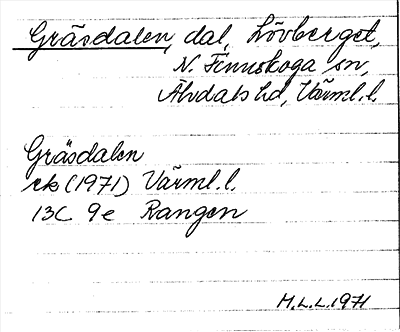 Gräsdalen, dal, Lövberget,
N. Finnskoga sn,
Älvdals hd, Värml. l.
Gräsdalen
ek (1971) Värml. l.
13C 9e Rangen
M.L.L. 1971